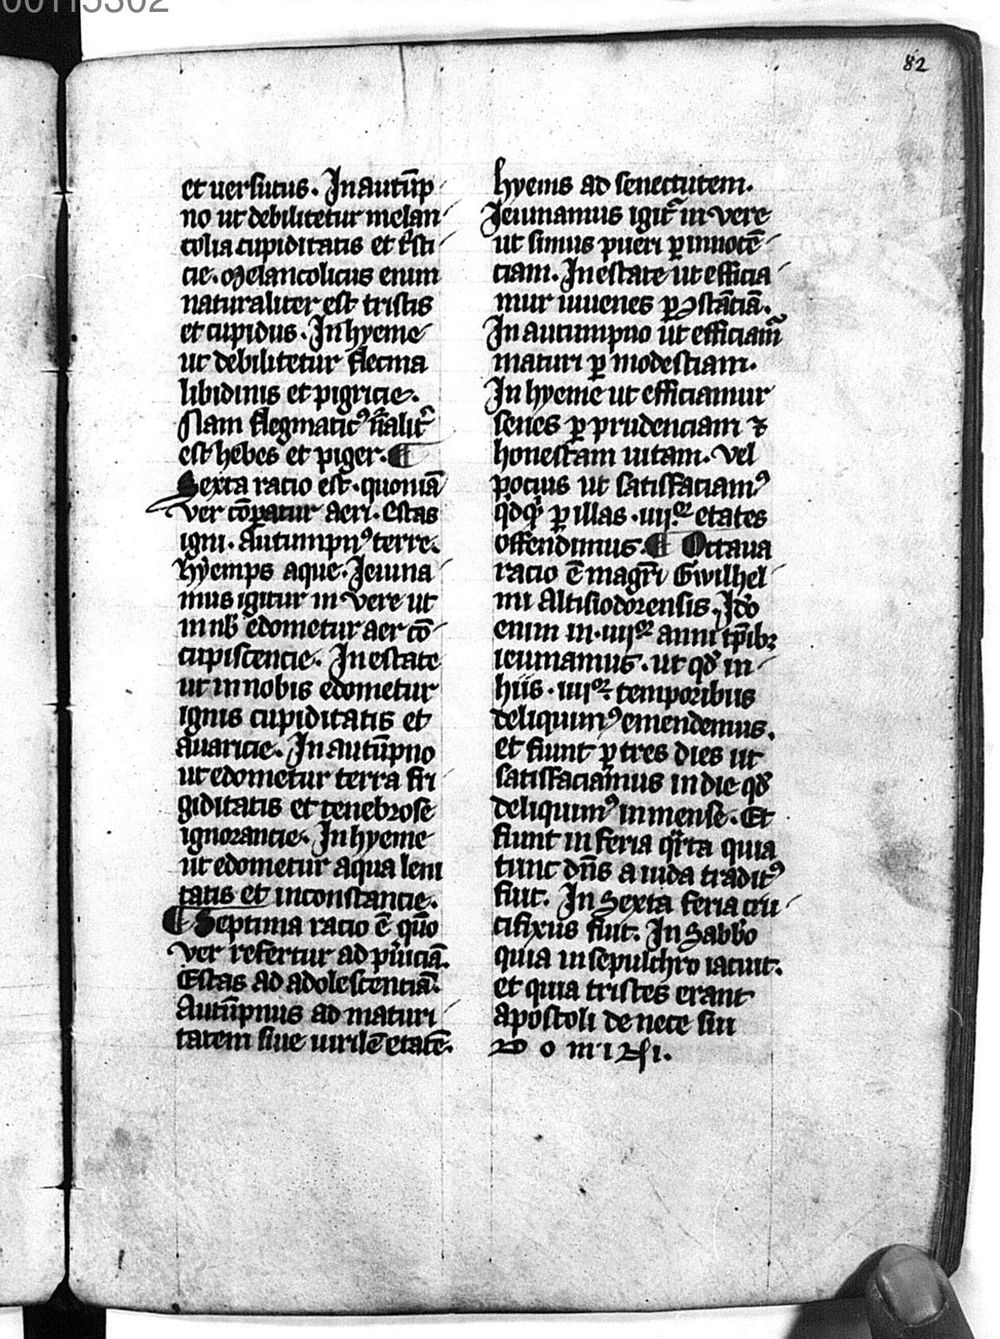 00115302
82
et uersutus. In autūp
no ut debilitetur melan
colia cupiditatis et t̄sti
cie. Melancolicus enim
naturaliter est tristis
et cupidus. In hyeme
ut debilitetur flecma
libidinis et pigricie.
Nam flegmaticꝰ n̄alit̄
est hebes et piger. ¶
Sexta ratio est. quoniā
ver cōparatur aeri. Estas
igni. Autumpnꝰ terre.
hyemps aque. Jeiuna
mus igitur in vere ut
in nob̄ edometur aer cō
cupiscencie. In estate
ut in nobis edometur
ignis cupiditatis et
auaricie. In autūpno
ut edometur terra fri
giditatis et tenebrose
ignorantie. In hyeme
ut edometur aqua leui
tatis et inconstantie.
¶ Septima ratio ē quō
ver refertur ad
Estas ad adolescentiā.
Autūpnus ad maturi
tatem siue uirilē etatē.
hyems ad senectutem.
Jeiunamus igit̄ in vere
ut simus pueri ꝑ innocē
ciam. In estate ut efficia
mur iuuenes ꝑ ꝯstāciā.
In autumpno ut efficiam̄
maturi ꝑ modestiam.
In hyeme ut efficiamur
senes ꝑ prudenciam ⁊
honestam uitam. Vel
pocius ut satisfaciamꝰ
ꝑ illas .iiiiꝛ. etates
offendimus. ¶ Octaua
ratio ē magr̄i Gwilhel
mi Altisiodorensis, Jdō
enim in .iiiiꝛ. anni tp̄ibꝫ
ieiunamus. ut qd̄ in
hiis .iiiiꝛ. temporibus
deliquimꝰ emendemus.
et fiunt ꝑ tres dies ut
satisfaciamus in die qd̄
deliquimꝰ in mense. Et
fiunt in feria qr̄ta quia
tunc dn̄s a iuda traditꝰ
fuit. In Sexta feria cru
cifixus fuit. In Sabbō
quia in sepulchro iacuit.
et quia tristes erant
apostoli de nece sui